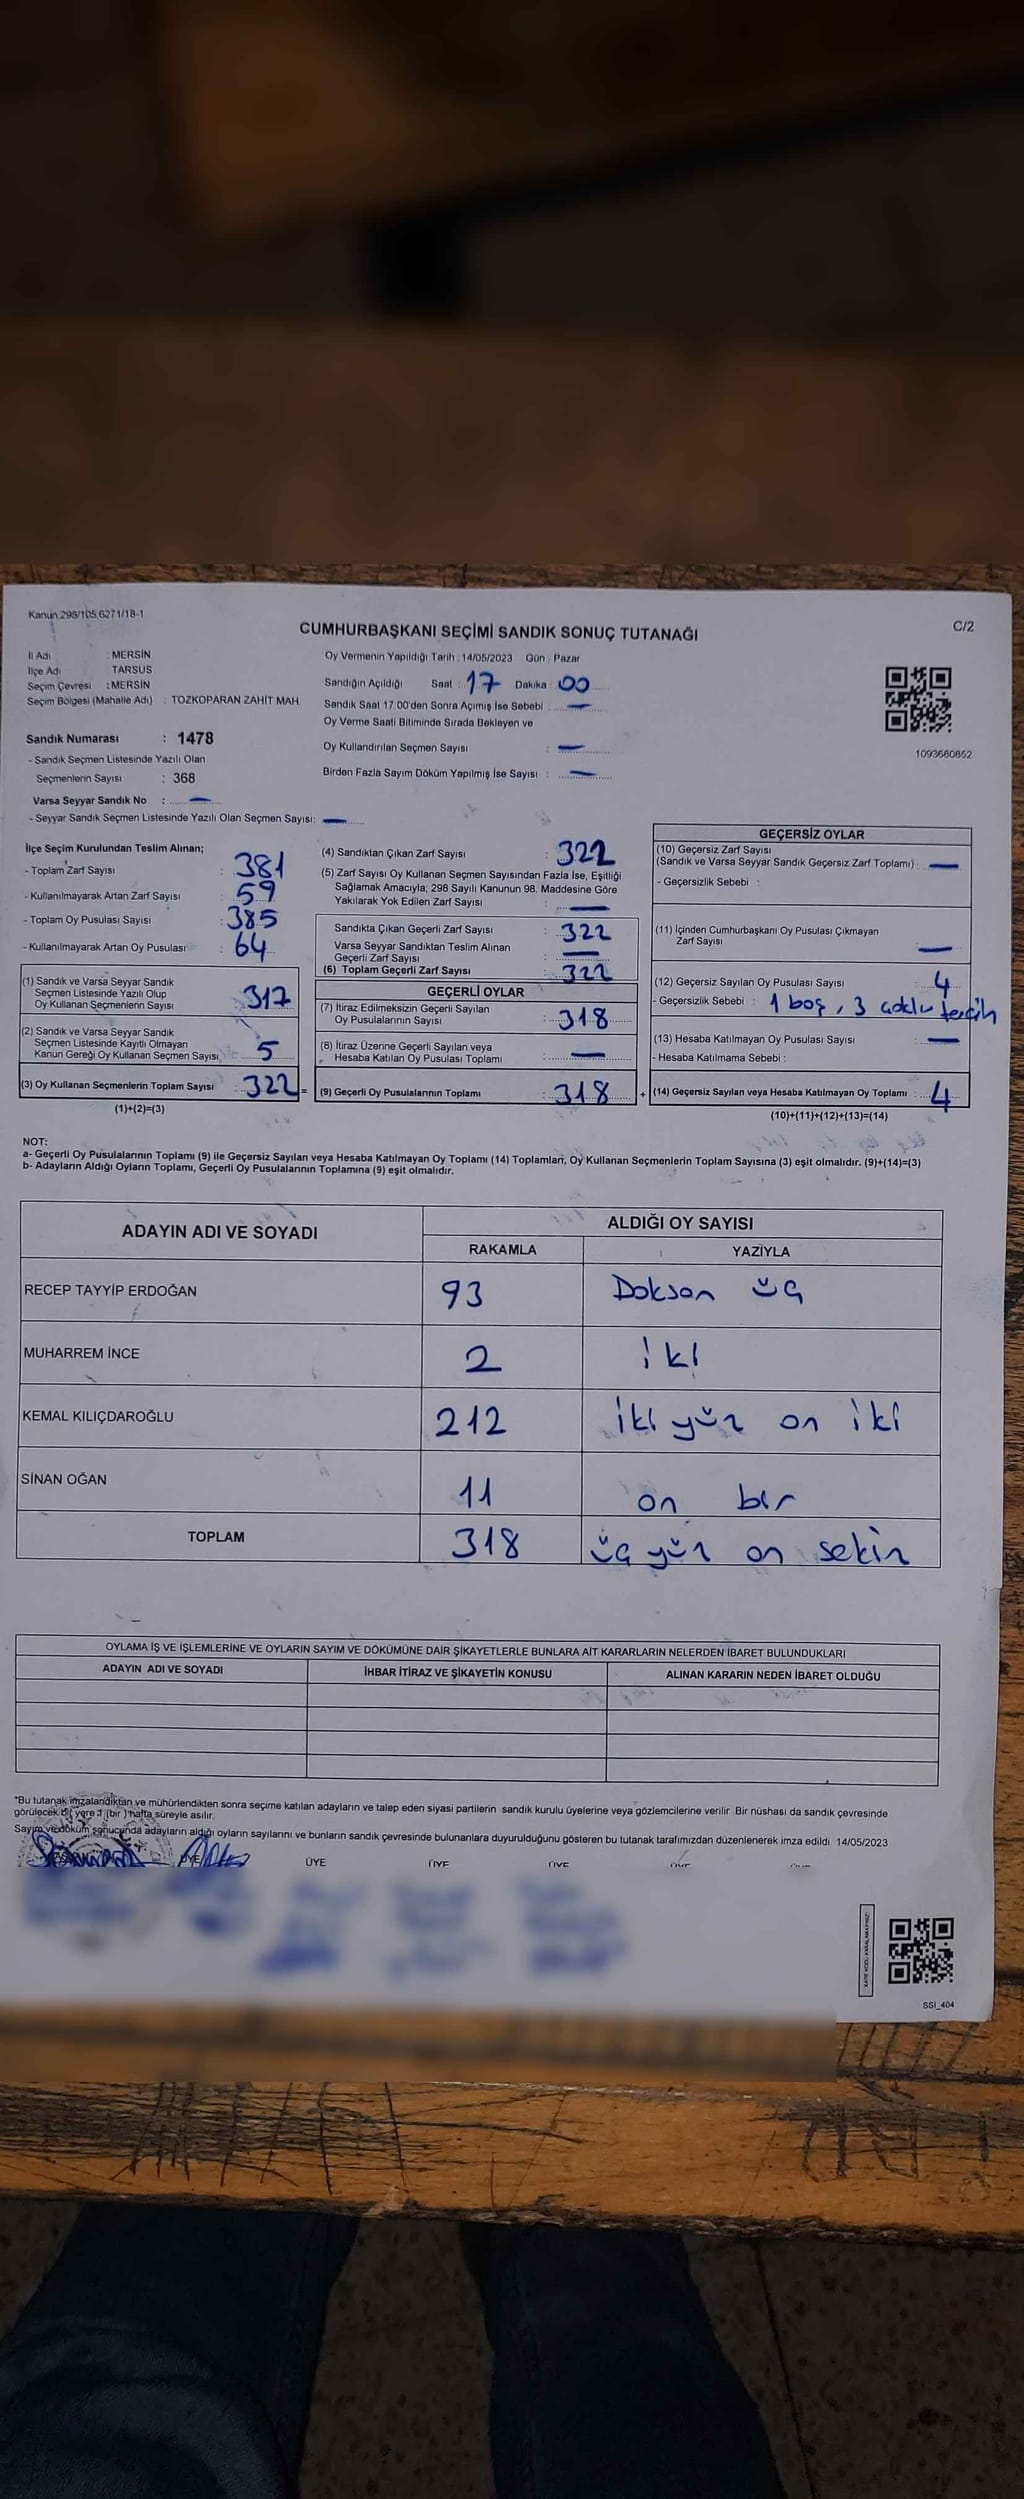 Kanun 298/105,6271/18-1
C/2
CUMHURBAŞKANI SEÇİMİ SANDIK SONUÇ TUTANAĞI
İl Adı : MERSİN
İlçe Adı : TARSUS
Seçim Çevresi : MERSİN
Seçim Bölgesi (Mahalle Adı) : TOZKOPARAN ZAHİT MAH.
Sandık Numarası : 1478
- Sandık Seçmen Listesinde Yazılı Olan
Seçmenlerin Sayısı : 368
Varsa Seyyar Sandık No : —
- Seyyar Sandık Seçmen Listesinde Yazılı Olan Seçmen Sayısı: —
Oy Vermenin Yapıldığı Tarih : 14/05/2023 Gün : Pazar
Sandığın Açıldığı Saat : 17 Dakika : 00
Sandık Saat 17.00'den Sonra Açımış İse Sebebi : —
Oy Verme Saati Bitiminde Sırada Bekleyen ve
Oy Kullandırılan Seçmen Sayısı : —
Birden Fazla Sayım Döküm Yapılmış İse Sayısı : —
1093680852
İlçe Seçim Kurulundan Teslim Alınan;
- Toplam Zarf Sayısı : 381
- Kullanılmayarak Artan Zarf Sayısı : 59
- Toplam Oy Pusulası Sayısı : 385
- Kullanılmayarak Artan Oy Pusulası : 64
(1) Sandık ve Varsa Seyyar Sandık
Seçmen Listesinde Yazılı Olup
Oy Kullanan Seçmenlerin Sayısı : 317
(2) Sandık ve Varsa Seyyar Sandık
Seçmen Listesinde Kayıtlı Olmayan
Kanun Gereği Oy Kullanan Seçmen Sayısı : 5
(3) Oy Kullanan Seçmenlerin Toplam Sayısı : 322 =
(1)+(2)=(3)
(4) Sandıktan Çıkan Zarf Sayısı : 322
(5) Zarf Sayısı Oy Kullanan Seçmen Sayısından Fazla İse, Eşitliği
Sağlamak Amacıyla; 298 Sayılı Kanunun 98. Maddesine Göre
Yakılarak Yok Edilen Zarf Sayısı : —
Sandıkta Çıkan Geçerli Zarf Sayısı : 322
Varsa Seyyar Sandıktan Teslim Alınan
Geçerli Zarf Sayısı : —
(6) Toplam Geçerli Zarf Sayısı : 322
GEÇERLİ OYLAR
(7) İtiraz Edilmeksizin Geçerli Sayılan
Oy Pusulalarının Sayısı : 318
(8) İtiraz Üzerine Geçerli Sayılan veya
Hesaba Katılan Oy Pusulası Toplamı : —
(9) Geçerli Oy Pusulalarının Toplamı : 318 +
GEÇERSİZ OYLAR
(10) Geçersiz Zarf Sayısı
(Sandık ve Varsa Seyyar Sandık Geçersiz Zarf Toplamı) : —
- Geçersizlik Sebebi :
(11) İçinden Cumhurbaşkanı Oy Pusulası Çıkmayan
Zarf Sayısı —
(12) Geçersiz Sayılan Oy Pusulası Sayısı : 4
- Geçersizlik Sebebi : 1 boş, 3 çoklu tercih
(13) Hesaba Katılmayan Oy Pusulası Sayısı : —
- Hesaba Katılmama Sebebi :
(14) Geçersiz Sayılan veya Hesaba Katılmayan Oy Toplamı : 4
(10)+(11)+(12)+(13)=(14)
NOT:
a- Geçerli Oy Pusulalarının Toplamı (9) ile Geçersiz Sayılan veya Hesaba Katılmayan Oy Toplamı (14) Toplamları, Oy Kullanan Seçmenlerin Toplam Sayısına (3) eşit olmalıdır. (9)+(14)=(3)
b- Adayların Aldığı Oyların Toplamı, Geçerli Oy Pusulalarının Toplamına (9) eşit olmalıdır.
ADAYIN ADI VE SOYADI ALDIĞI OY SAYISI
RAKAMLA YAZIYLA
RECEP TAYYİP ERDOĞAN 93 Doksan üç
MUHARREM İNCE 2 iki
KEMAL KILIÇDAROĞLU 212 iki yüz on iki
SİNAN OĞAN 11 on bir
TOPLAM 318 üç yüz on sekiz
OYLAMA İŞ VE İŞLEMLERİNE VE OYLARIN SAYIM VE DÖKÜMÜNE DAİR ŞİKAYETLERLE BUNLARA AİT KARARLARIN NELERDEN İBARET BULUNDUKLARI
ADAYIN ADI VE SOYADI İHBAR İTİRAZ VE ŞİKAYETİN KONUSU ALINAN KARARIN NEDEN İBARET OLDUĞU
*Bu tutanak imzalandıktan ve mühürlendikten sonra seçime katılan adayların ve talep eden siyasi partilerin sandık kurulu üyelerine veya gözlemcilerine verilir. Bir nüshası da sandık çevresinde
görülecek bir yere 1 (bir) hafta süreyle asılır.
Sayım ve döküm sonucunda adayların aldığı oyların sayılarını ve bunların sandık çevresinde bulunanlara duyurulduğunu gösteren bu tutanak tarafımızdan düzenlenerek imza edildi. 14/05/2023
ÜYE ÜYE ÜYE ÜYE
SSI_404